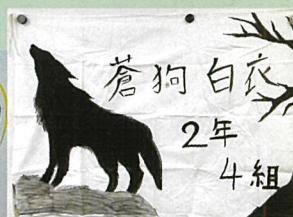 蒼狗白衣
2年
4組